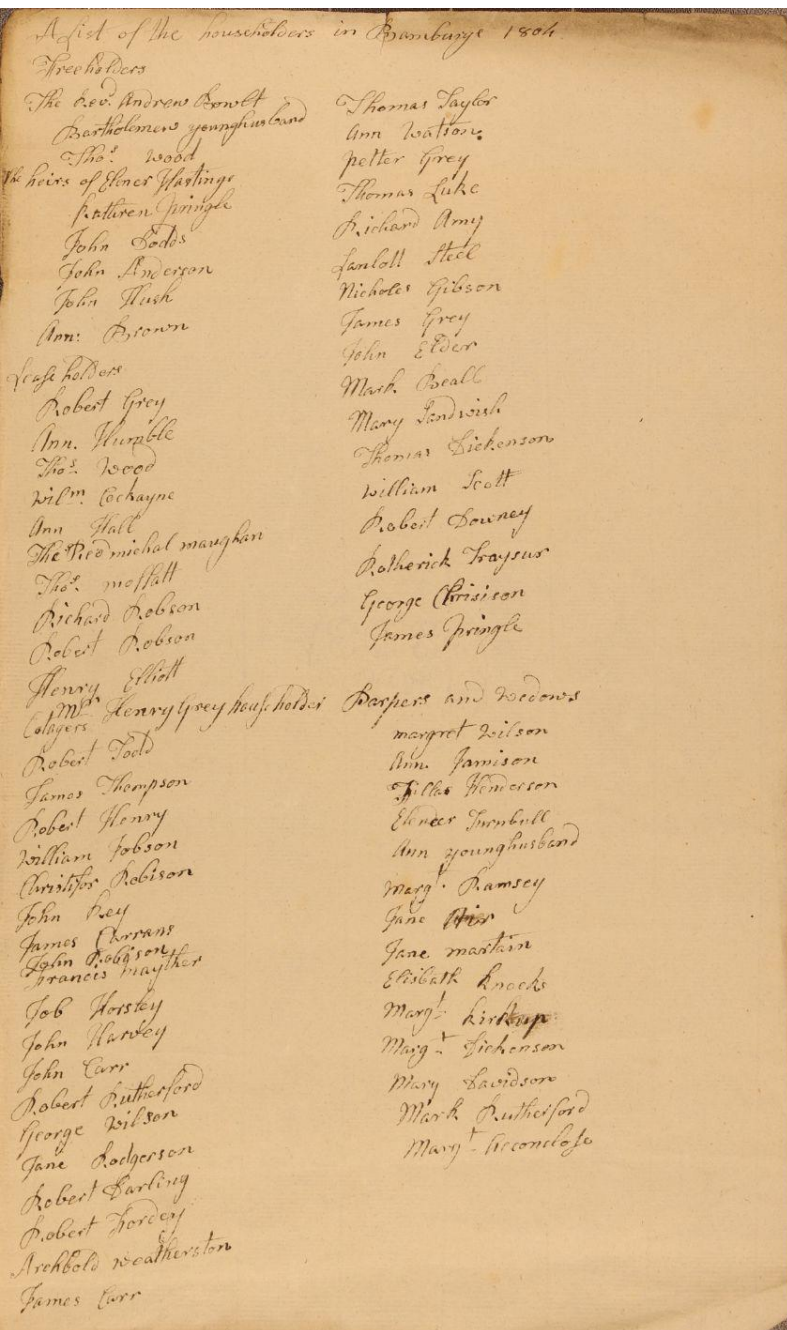 A List of the householders in Bamburge 1804
Freeholders
The Revd. Andrew Bowlt
Bartholemew younghusband
Thos. Wood
The heirs of Eliner Hastings
Kathren Pringle
John Dodds
John Anderson
John Hush
Ann: Brown
Lease holders
Robert Grey
Ann. Humble
Thos. Wood
Wilm. Cockayne
Ann Hall
The Revd michal maughan
Thos. moffatt
Richard Robson
Robert Robson
Henry Elliott
Mr. Henry Grey householder
Cotagers
Robert Todd
James Thompson
Robert Henry
William Jobson
Christifor Robison
John Key
James Currans
John Robison
Francis mayther
Job Horsley
John Harvey
John Carr
Robert Rutherford
George Wilson
Jane Rodgerson
Robert Darling
Robert Fordey
Archbold weatherston
James Carr
Thomas Taylor
Ann Watson
petter Grey
Thomas Luke
Richard Amy
Lanlott Steel
Nicholes Gibson
James Grey
John Elder
Mark Beall
Mary Sandwish
Thomas Dickenson
William Scott
Robert Downey
Rotherick Fraysur
George Chrisison
James Pringle
Parpers and wedows
margret Wilson
Ann. Jamison
Fillas Henderson
Elener Turnbull
Ann younghusband
Margt. Ramsey
Jane
Jane martain
Elisbath Knocks
Margt. Kirkup
Margt. Dickenson
Mary Davidson
Mark Rutherford
Margt.